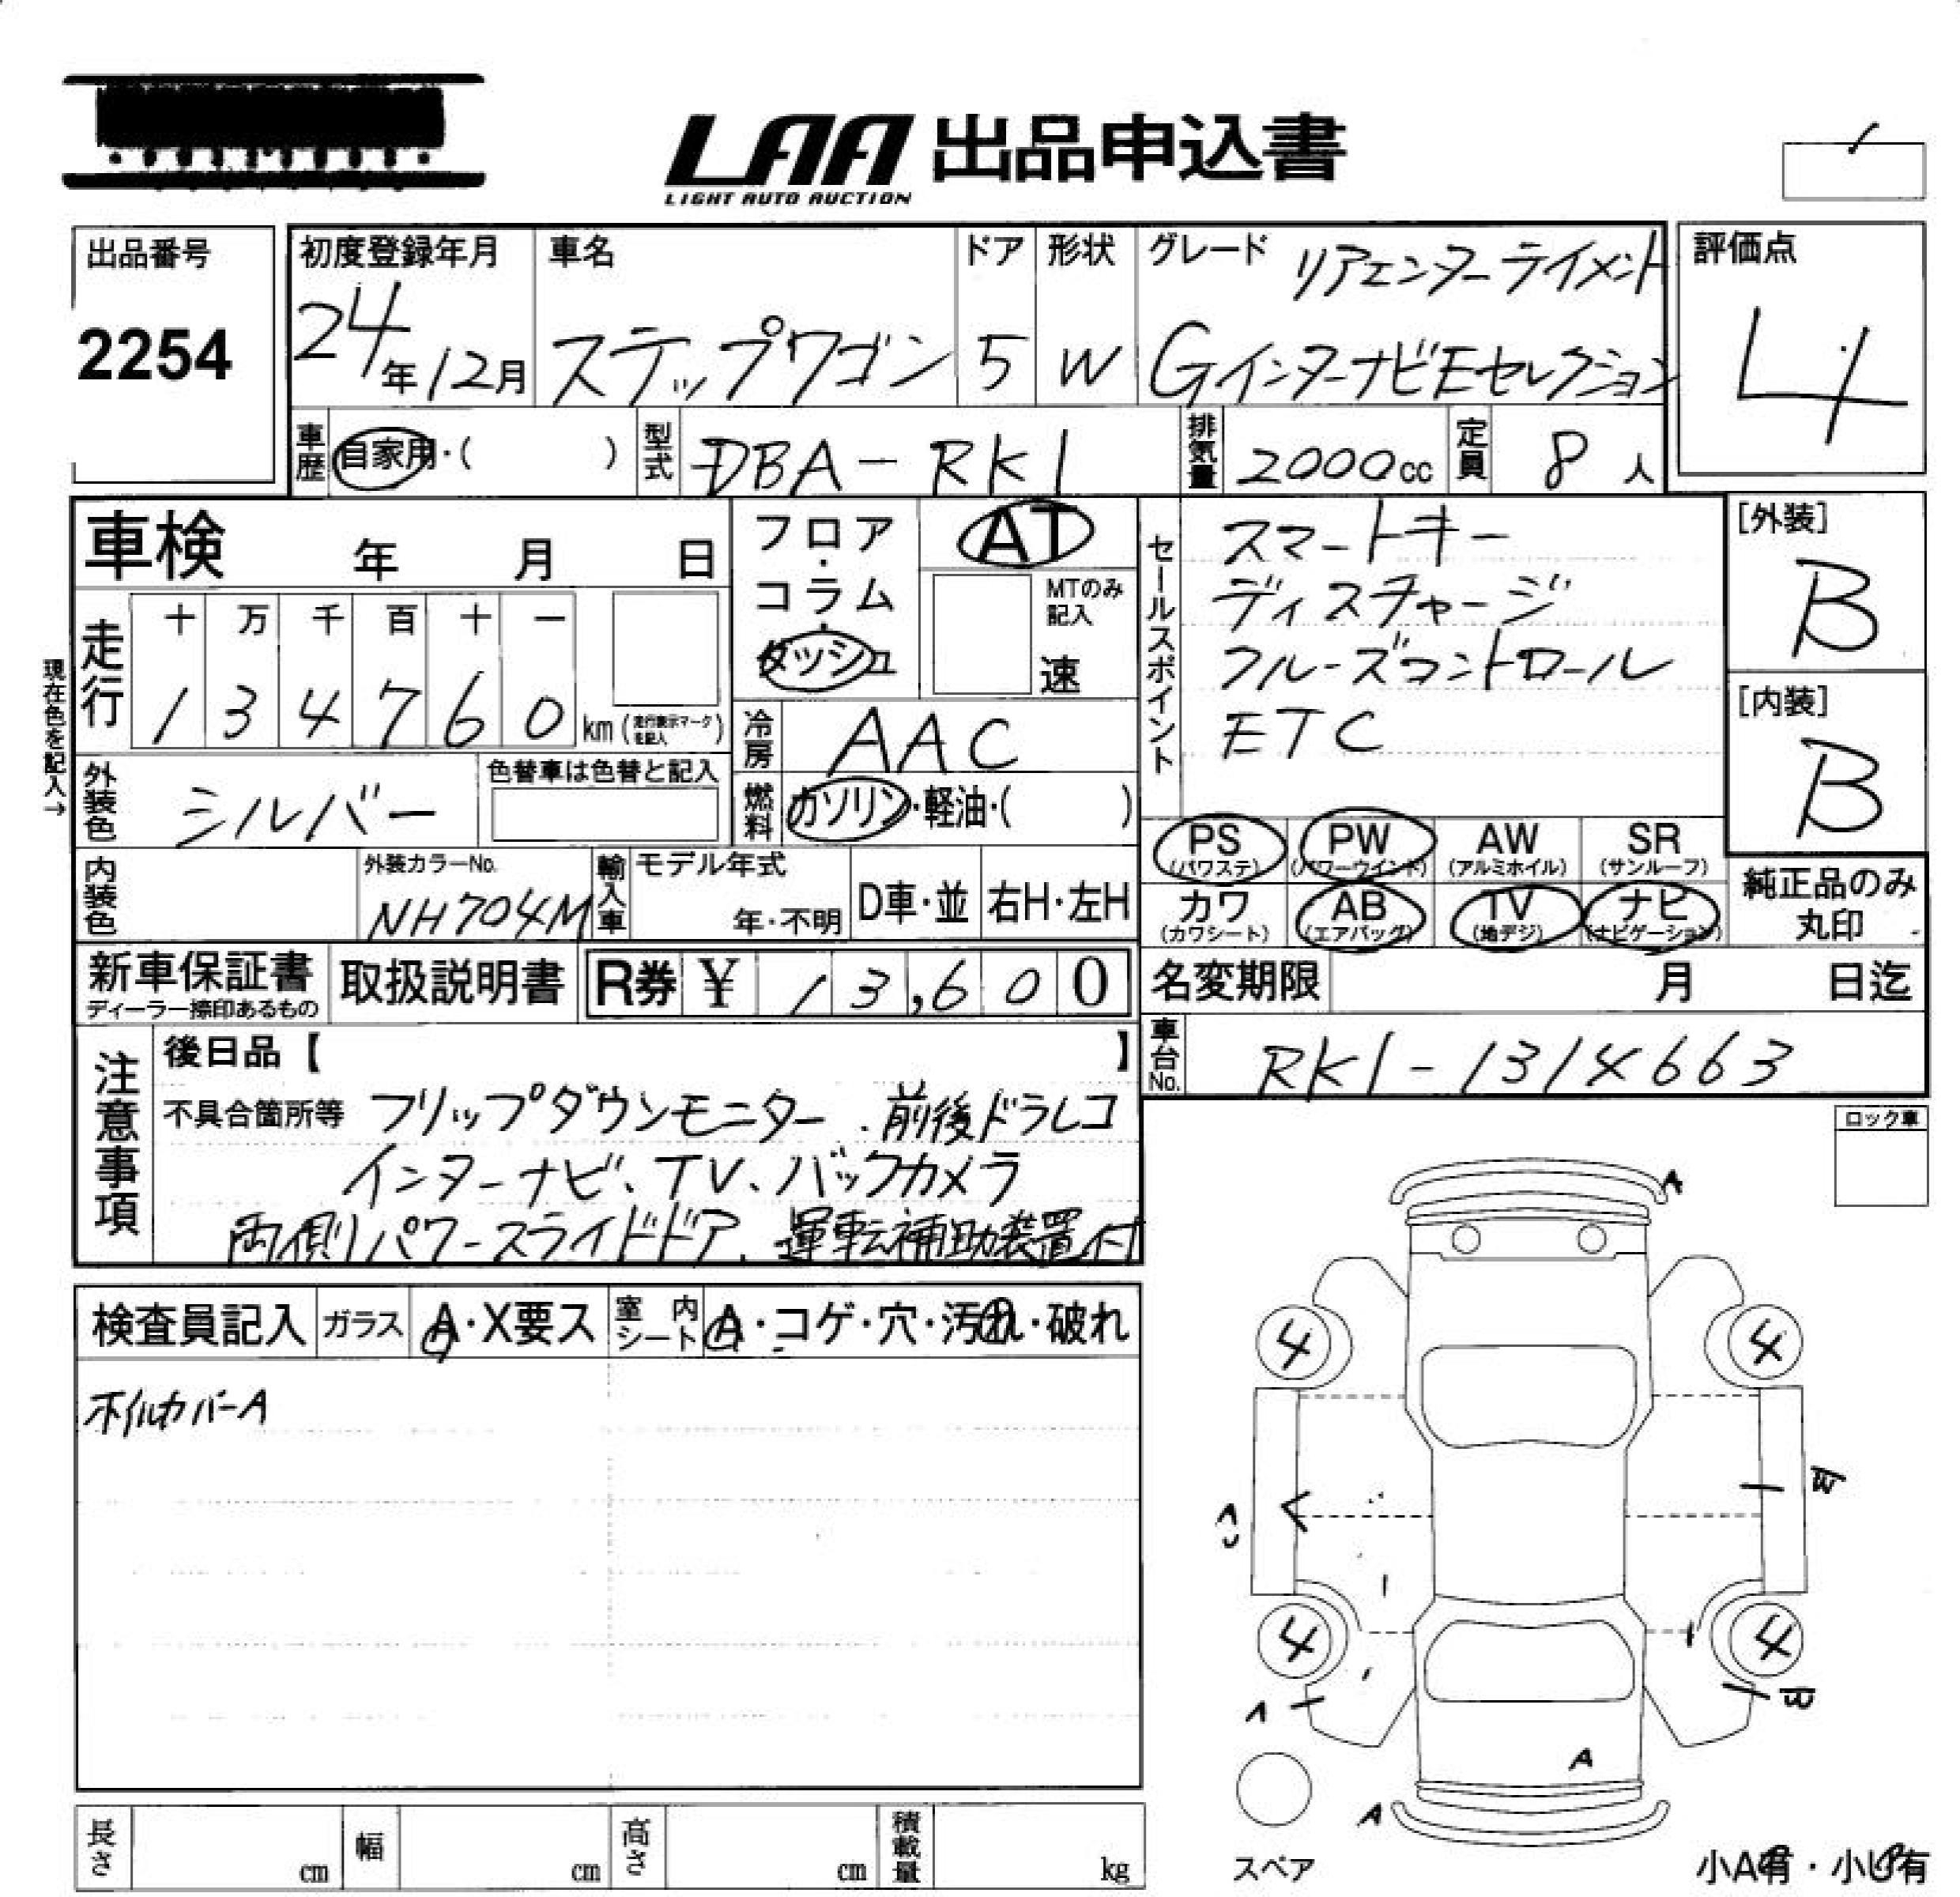 LAA 出品申込書
LIGHT AUTO AUCTION
出品番号
2254
初度登録年月
24年12月
車名
ステップワゴン
ドア
5
形状
W
グレード リアエンターテイメント
GインターナビEセレクション
評価点
4
車歴 自家用・( )
型式 DBA-RK1
排気量 2000cc
定員 8人
車検 年 月 日
走行
十 万 千 百 十 一
1 3 4 7 6 0 km (走行表示マークを記入)
現在色を記入→
フロア・コラム・ダッシュ
AT
MTのみ記入
速
冷房 AAC
燃料 ガソリン・軽油・( )
セールスポイント
スマートキー
ディスチャージ
クルーズコントロール
ETC
[外装]
B
[内装]
B
外装色 シルバー
色替車は色替と記入
内装色
外装カラーNo.
NH704M
輸入車
モデル年式
年・不明
D車・並
右H・左H
PS (パワステ)
PW (パワーウインド)
AW (アルミホイル)
SR (サンルーフ)
カワ (カワシート)
AB (エアバッグ)
TV (地デジ)
ナビ (ナビゲーション)
純正品のみ
丸印
新車保証書
ディーラー捺印あるもの
取扱説明書
R券 ¥ 13,600
名変期限 月 日迄
車台No. RK1-1314663
注意事項
後日品【 】
不具合箇所等 フリップダウンモニター、前後ドラレコ
インターナビ、TV、バックカメラ
両側パワースライドドア、運転補助装置付
ロック車
検査員記入
ガラス A・X要ス
室内シート A・コゲ・穴・汚れ・破れ
ホイルカバーA
A
4 4
4 4
A
A
スペア
小A有・小U有
長さ cm
幅 cm
高さ cm
積載量 kg